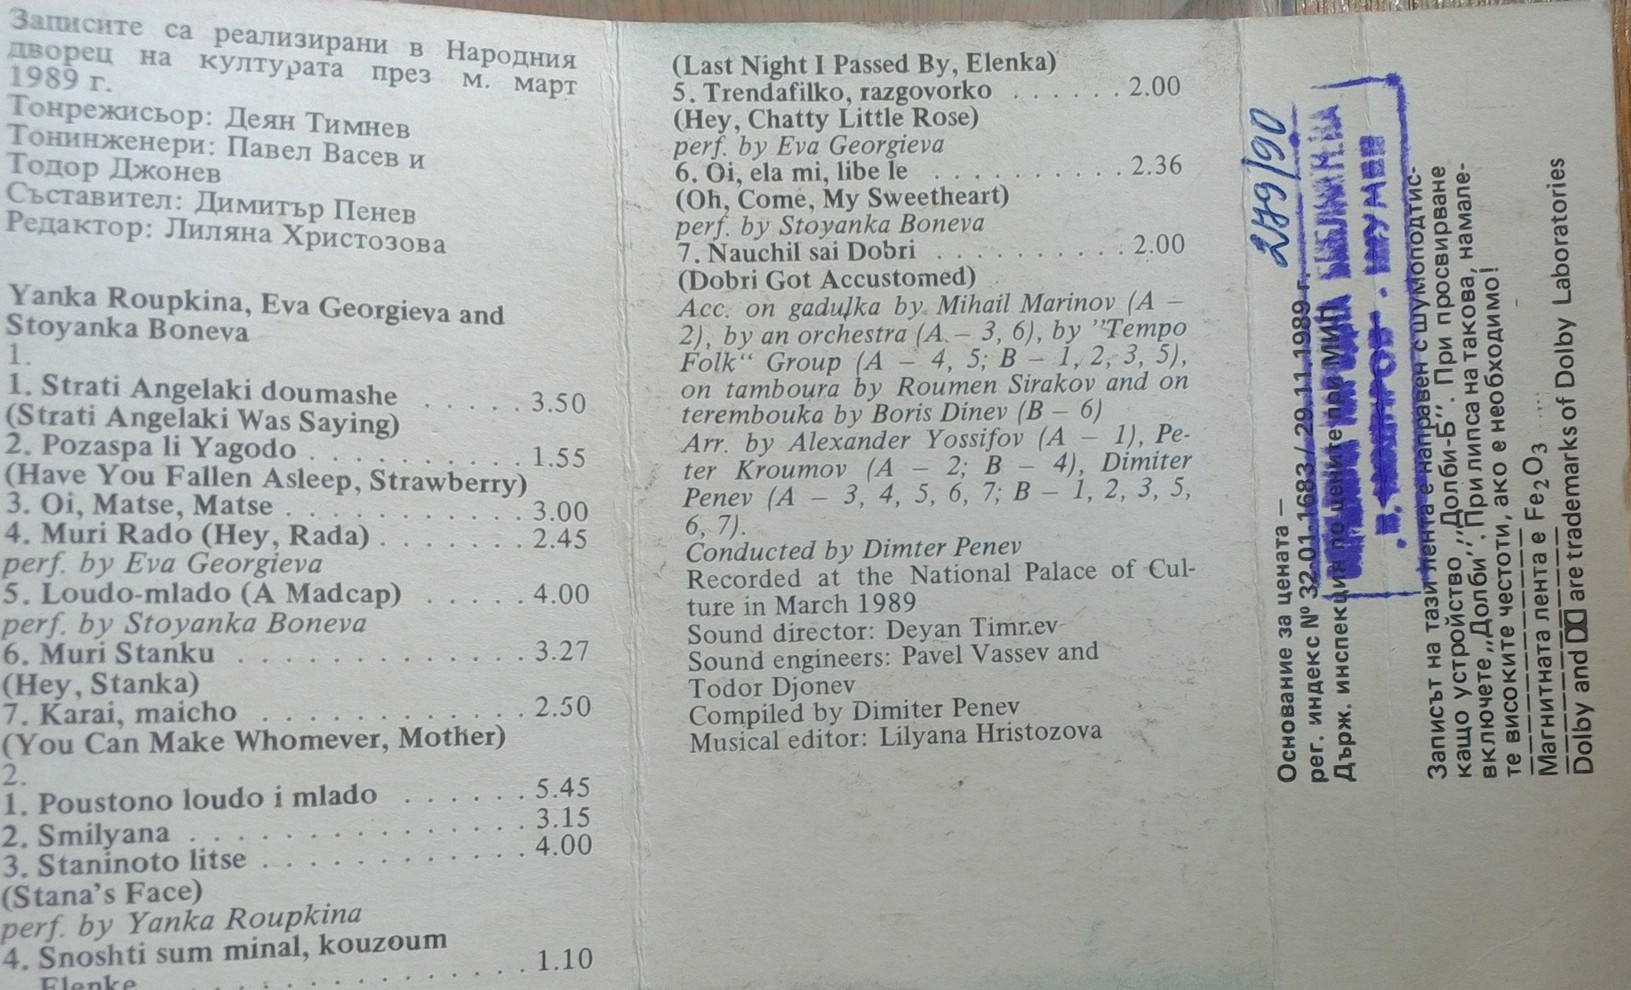 Записите са реализирани в Народния
дворец на културата през м. март
1989 г.
Тонрежисьор: Деян Тимнев
Тонинженери: Павел Васев и
Тодор Джонев
Съставител: Димитър Пенев
Редактор: Лиляна Христозова
Yanka Roupkina, Eva Georgieva and
Stoyanka Boneva
1.
1. Strati Angelaki doumashe . . . . . 3.50
(Strati Angelaki Was Saying)
2. Pozaspa li Yagodo . . . . . . . . . . 1.55
(Have You Fallen Asleep, Strawberry)
3. Oi, Matse, Matse . . . . . . . . . . . 3.00
4. Muri Rado (Hey, Rada) . . . . . . . 2.45
perf. by Eva Georgieva
5. Loudo-mlado (A Madcap) . . . . . 4.00
perf. by Stoyanka Boneva
6. Muri Stanku . . . . . . . . . . . . . 3.27
(Hey, Stanka)
7. Karai, maicho . . . . . . . . . . . . 2.50
(You Can Make Whomever, Mother)
2.
1. Poustono loudo i mlado . . . . . . 5.45
2. Smilyana . . . . . . . . . . . . . . . 3.15
3. Staninoto litse . . . . . . . . . . . . 4.00
(Stana's Face)
perf. by Yanka Roupkina
4. Snoshti sum minal, kouzoum
Elenke . . . . . . . . . . . . . . . . 1.10
(Last Night I Passed By, Elenka)
5. Trendafilko, razgovorko . . . . . . 2.00
(Hey, Chatty Little Rose)
perf. by Eva Georgieva
6. Oi, ela mi, libe le . . . . . . . . . . 2.36
(Oh, Come, My Sweetheart)
perf. by Stoyanka Boneva
7. Nauchil sai Dobri . . . . . . . . . . 2.00
(Dobri Got Accustomed)
Acc. on gadulka by Mihail Marinov (A –
2), by an orchestra (A – 3, 6), by "Tempo
Folk“ Group (A – 4, 5; B – 1, 2, 3, 5),
on tamboura by Roumen Sirakov and on
terembouka by Boris Dinev (B – 6)
Arr. by Alexander Yossifov (A – 1), Pe-
ter Kroumov (A – 2; B – 4), Dimiter
Penev (A – 3, 4, 5, 6, 7; B – 1, 2, 3, 5,
6, 7).
Conducted by Dimter Penev
Recorded at the National Palace of Cul-
ture in March 1989
Sound director: Deyan Timnev
Sound engineers: Pavel Vassev and
Todor Djonev
Compiled by Dimiter Penev
Musical editor: Lilyana Hristozova
279/90
Основание за цената –
рег. индекс № 32.01.1683/29.11.1989 г.
Държ. инспекция по цените при МИП
Записът на тази лента е направен с шумоподтис-
кащо устройство „Долби-Б“. При просвирване
включете „Долби“. При липса на такова, намале-
те високите честоти, ако е необходимо!
Магнитната лента е Fe2O3
Dolby and are trademarks of Dolby Laboratories